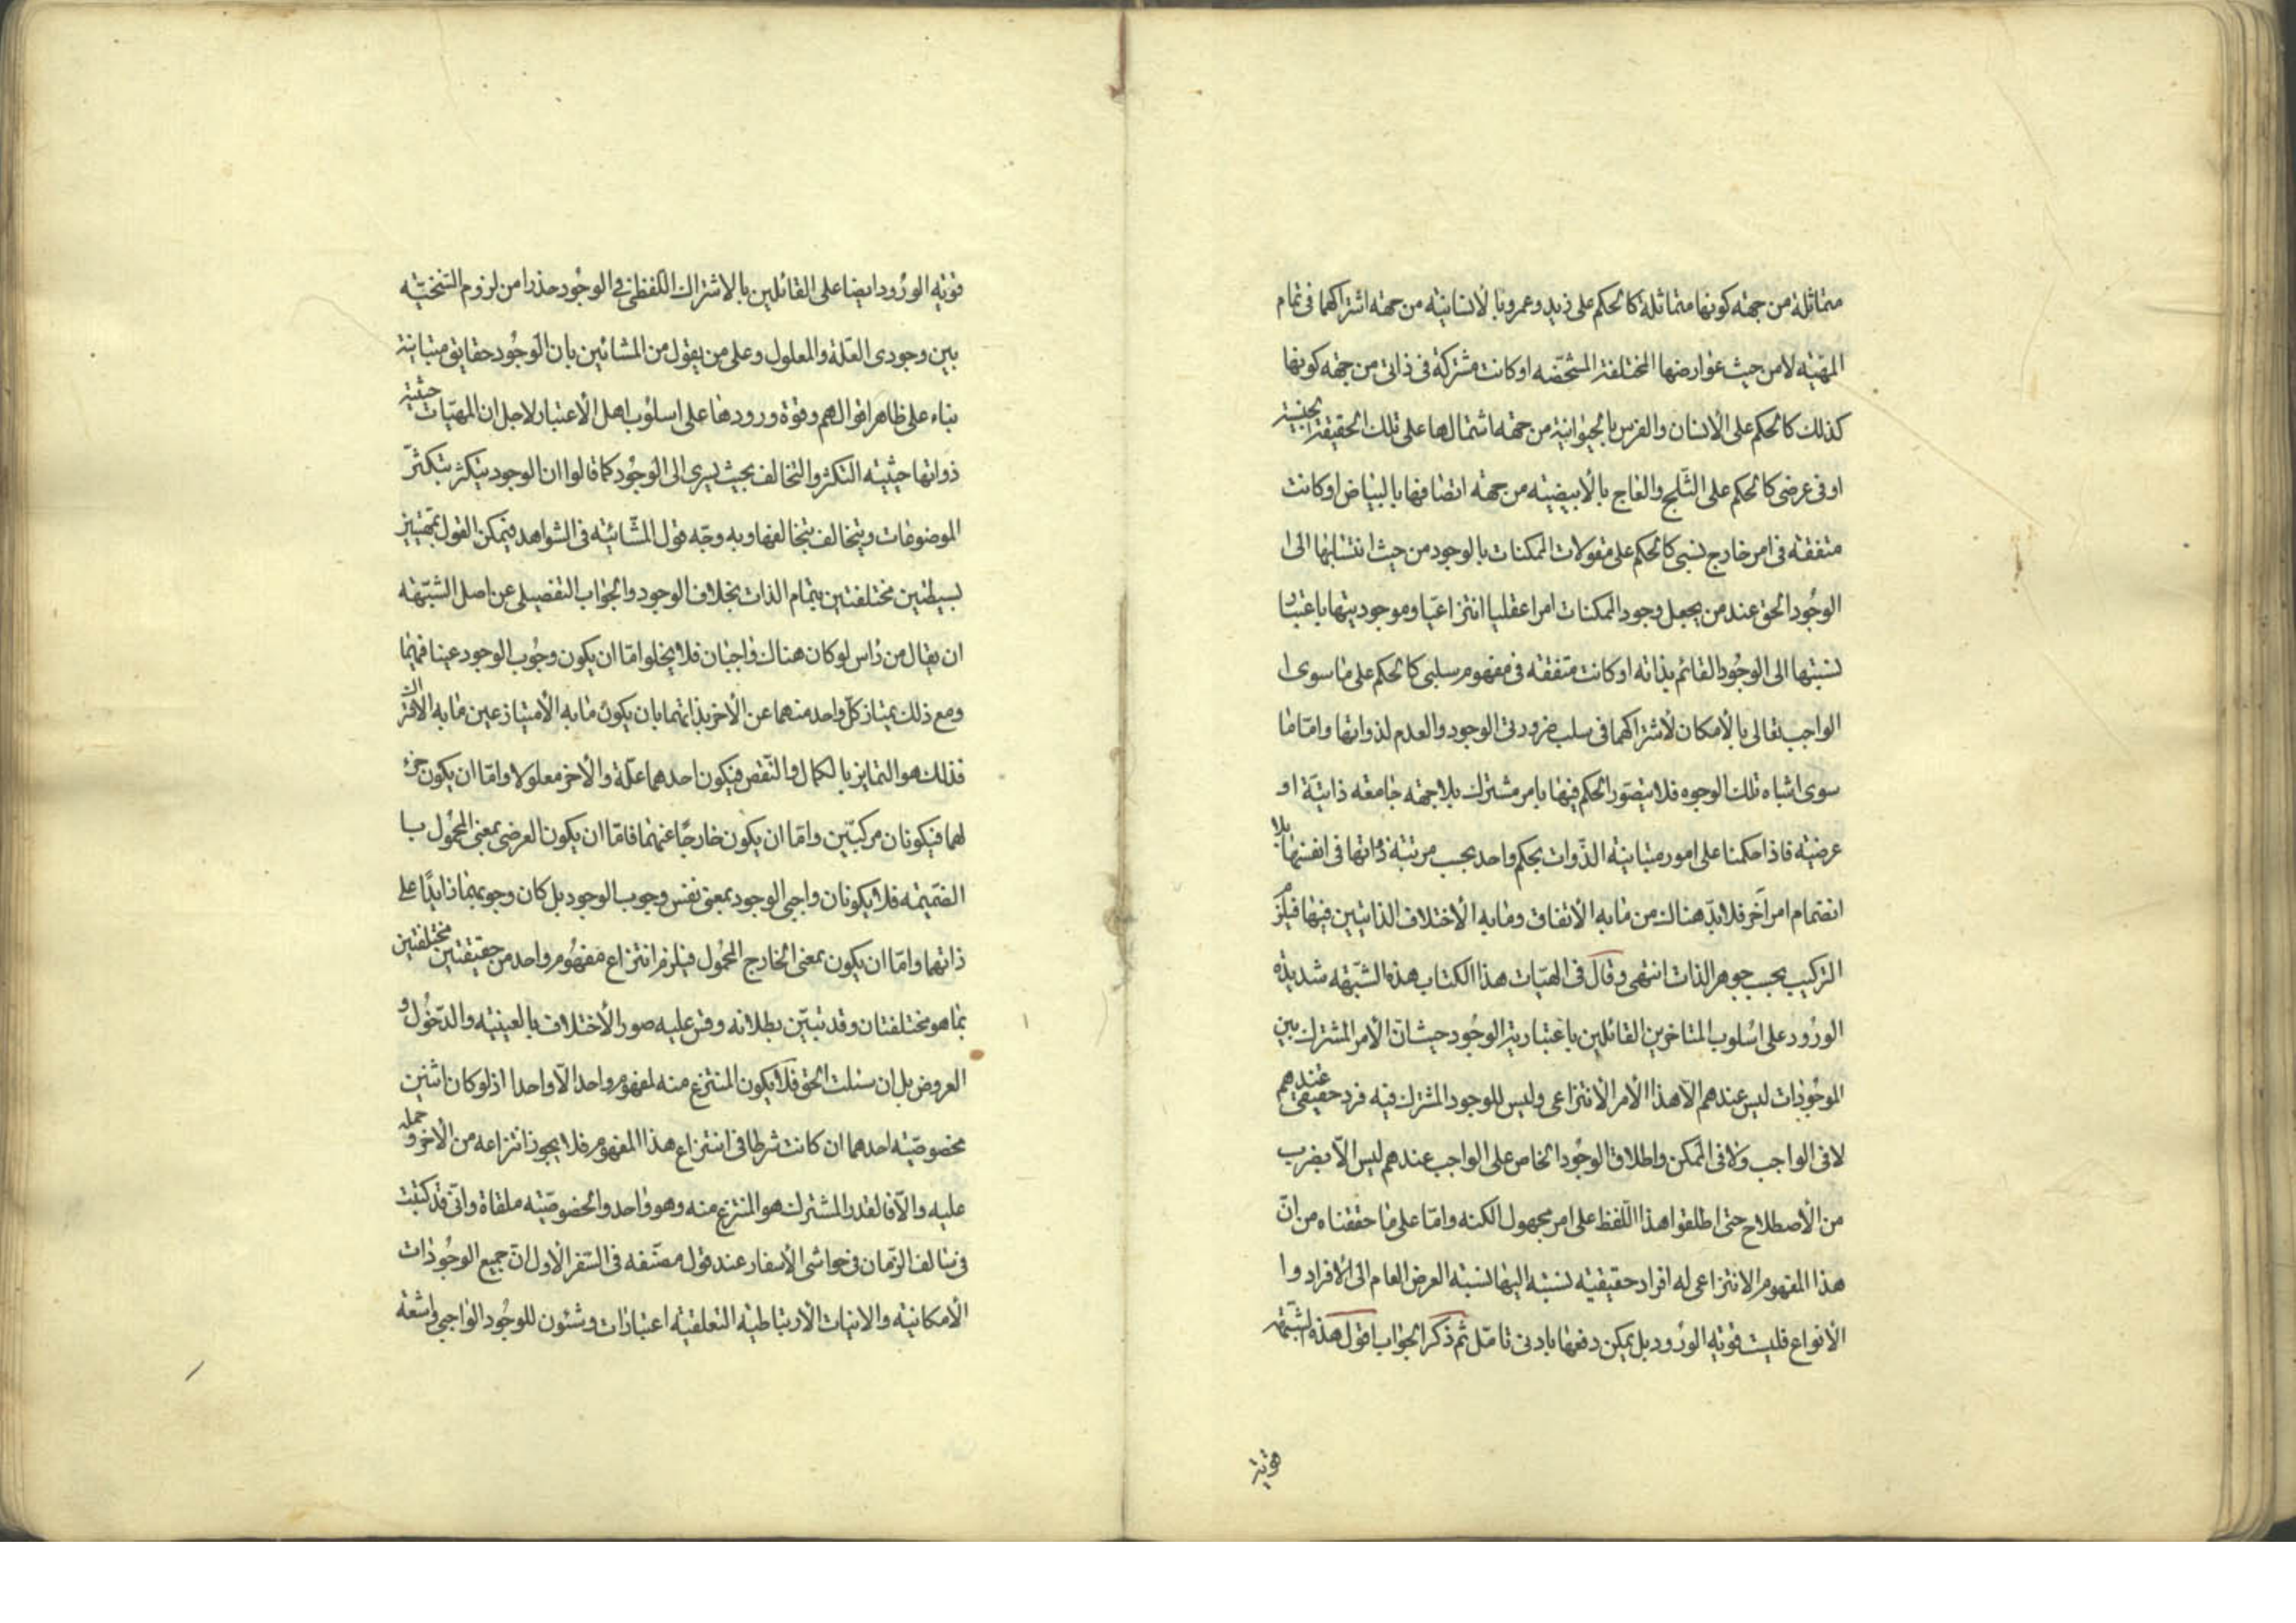 متماثلة من جهة كونها متماثلة كالحكم على زيد وعمرو بالانسانية من جهة اشتراكهما فى تمام
المهية لا من حيث عوارضها المختلفة المشخصه او كانت مشتركة فى ذاتى من جهة كونها
كذلك كالحكم على الانسان والفرس بالحيوانية من جهة اشتمالها على تلك الحقيقة الجنسية
او فى عرضى كالحكم على الثلج والعاج بالابيضيه من جهة اتصافها بالبياض او كانت
متفقة فى امر خارج نسبى كالحكم على مقولات الممكنات بالوجود من حيث انتسابها الى ا
الوجود الحق عند من يجعل وجود الممكنات امرا عقليا انتزاعيا وموجوديتها باعتبار
نسبتها الى الوجود القائم بذاته او كانت متفقة فى مفهوم سلبى كالحكم على ما سوى ا
الواجب تعالى بالامكان لاشتراكهما فى سلب ضرورتى الوجود والعدم لذواتها واما ما
سوى اشباه تلك الوجوه فلا يتصور الحكم فيها بامر مشترك بلا جهة جامعه ذاتية او
عرضيه فاذا حكمنا على امور متباينة الذوات بحكم واحد بحسب مرتبة ذواتها فى انفسها بلا
انضمام امر آخر فلابد هناك من ما به الاتفاق وما به الاختلاف الذاتيين فيها فيلزم
التركيب بحسب جوهر الذات انتهى وقال فى الهيات هذا الكتاب هذه الشبهة شديدة
الورود على اسلوب المتاخرين القائلين باعتبارية الوجود حيث ان الامر المشترك بين
الموجودات ليس عندهم الا هذا الامر الانتزاعى وليس للوجود المشترك فيه فرد حقيقى عندهم
لا فى الواجب ولا فى الممكن واطلاق الوجود الخاص على الواجب عندهم ليس الا بضرب
من الاصطلاح حتى اطلقوا هذا اللفظ على امر مجهول الكنه واما على ما حققناه من ان
هذا المفهوم الانتزاعى له افراد حقيقية نسبته اليها نسبة العرض العام الى الافراد وا
الانواع فليست قوية الورود بل يمكن دفعها بادنى تامل ثم ذكر الجواب اقول هذه الشبهة
قوية
قوية الورود ايضا على القائلين بالاشتراك اللفظى فى الوجود حذرا من لزوم السنخية
بين وجودى العلة والمعلول وعلى من يقول من المشائين بان الوجود حقايق متباينة
بناء على ظاهر اقوالهم وقوة ورودها على اسلوب اهل الاعتبار لاجل ان المهيات حيثية
ذواتها حيثية التكثر والتخالف بحيث يسرى الى الوجود كما قالوا ان الوجود يتكثر بتكثر
الموضوعات ويتخالف بتخالفها وبه وجه قول المشائيه فى الشواهد فيمكن القول بمهيتين
بسيطتين مختلفتين بتمام الذات بخلاف الوجود والجواب التفصيلى عن اصل الشبهة
ان يقال من راس لو كان هناك واجبان فلا يخلوا اما ان يكون وجوب الوجود عينا فيهما
ومع ذلك يمتاز كل واحد منهما عن الاخر بذاتهما بان يكون ما به الامتياز عين ما به الاشتراك
فذلك هو التمايز بالكمال والنقص فيكون احدهما علة والاخر معلولا واما ان يكون جزء
لهما فيكونان مركبين واما ان يكون خارجا عنهما فاما ان يكون العرضى بمعنى المحمول با
الضميمه فلا يكونان واجبى الوجود بمعنى نفس وجوب الوجود بل كان وجوبهما زايدا على
ذاتهما واما ان يكون بمعنى الخارج المحمول فيلزم انتزاع مفهوم واحد من حقيقتين مختلفتين
بما هو مختلفتان وقد تبين بطلانه وقس عليه صور الاختلاف بالعينيه والدخول و
العروض بل ان سئلت الحق فلا يكون المنتزع منه لمفهوم واحد الا واحدا اذ لو كان اثنين
مخصوصية احدهما ان كانت شرطا فى انتزاع هذا المفهوم فلا يجوز انتزاعه من الاخر وحمله
عليه والا فالقدر المشترك هو المنتزع منه وهو واحد والخصوصية ملقاة وانى قد كتبت
فى سالف الزمان فى حواشى الاسفار عند قول مصنفه فى السفر الاول ان جميع الوجودات
الامكانية والانيات الارتباطية التعلقية اعتبارات وشئون للوجود الواجبى واشعة